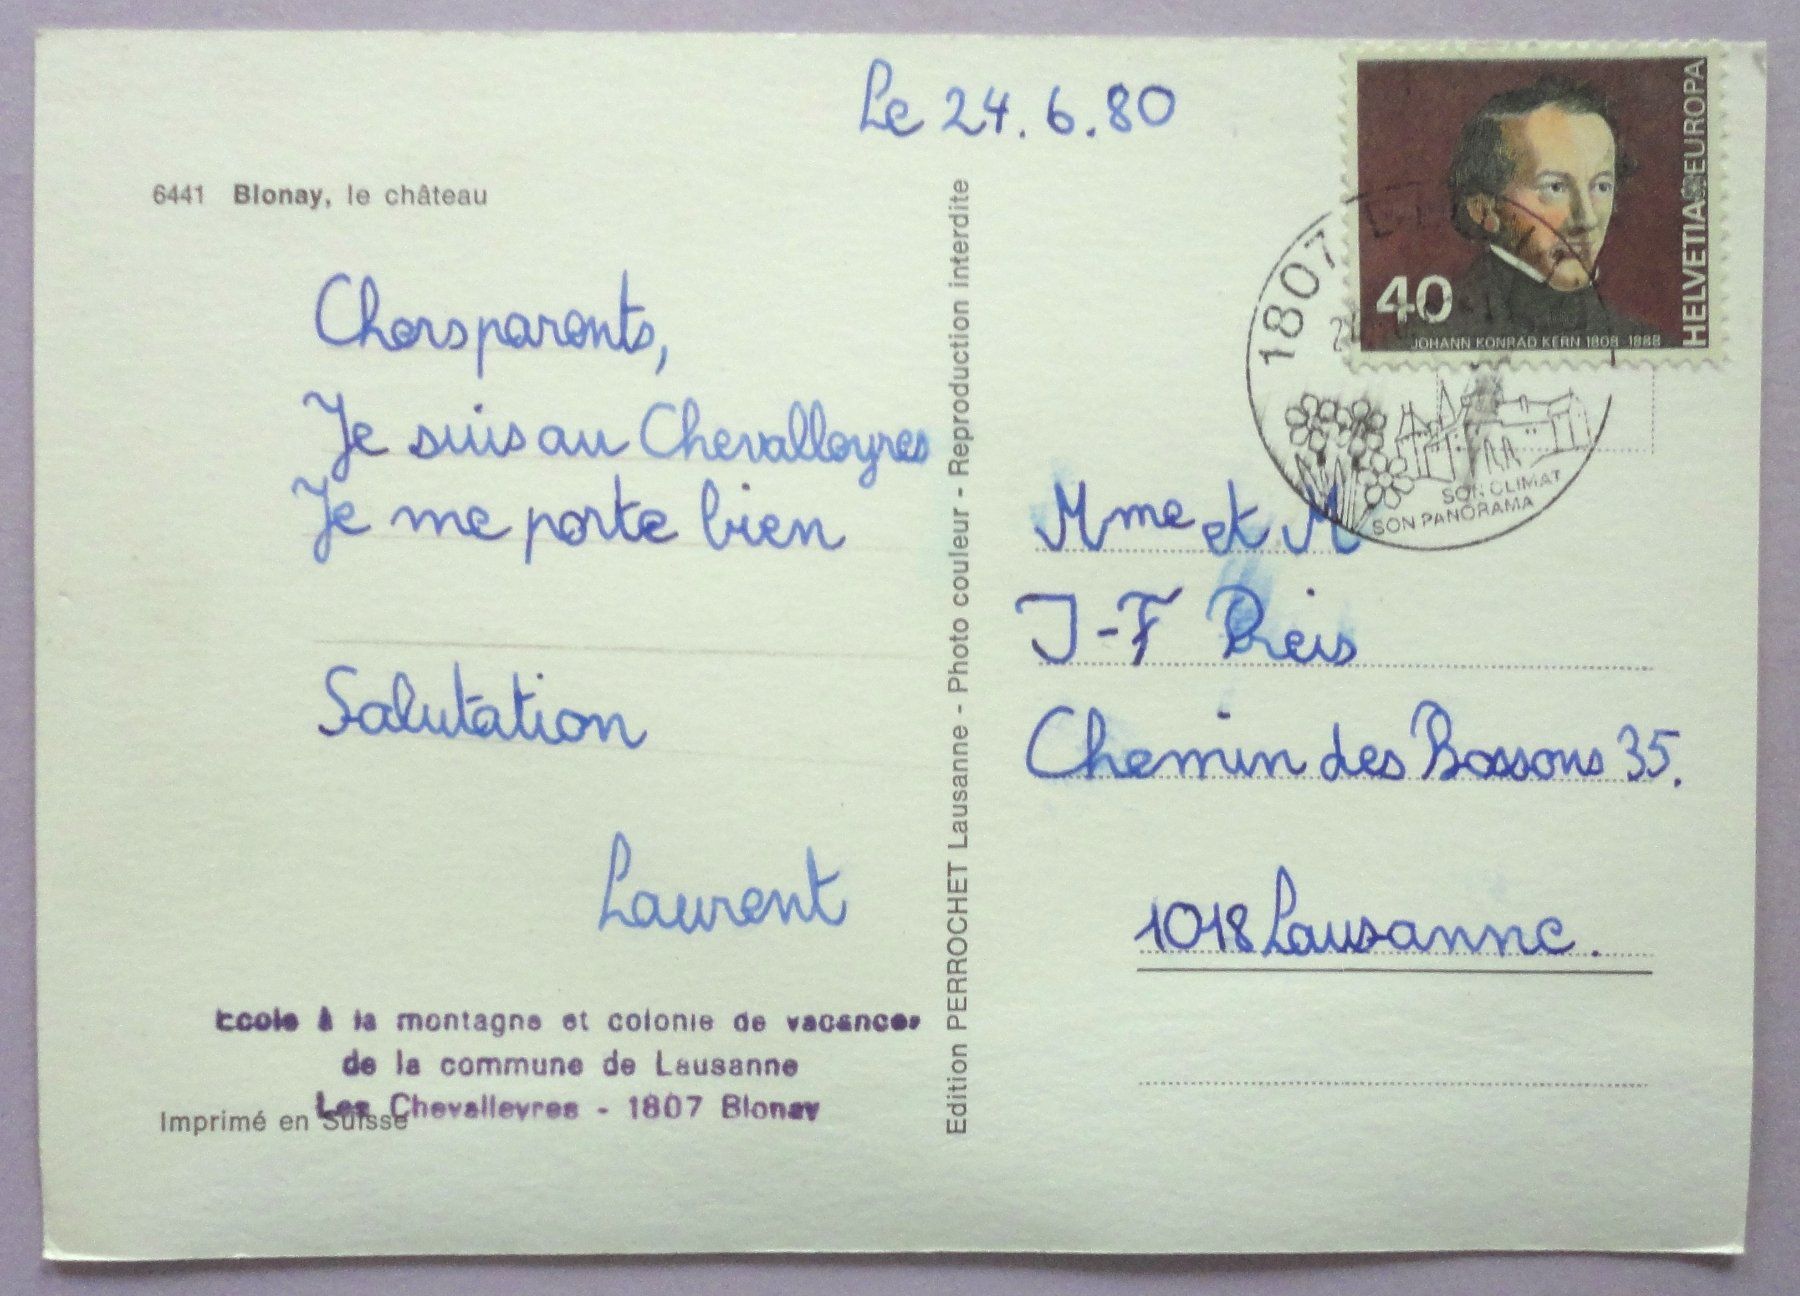 Le 24.6.80
6441 Blonay, le château
Chers parents,
Je suis au Chevalleyres
Je me porte bien
Salutation
Laurent
Ecole à la montagne et colonie de vacances
de la commune de Lausanne
Les Chevalleyres - 1807 Blonay
Imprimé en Suisse
Edition PERROCHET Lausanne - Photo couleur - Reproduction interdite
HELVETIA EUROPA
40
JOHANN KONRAD KERN 1808-1888
1807
SON CLIMAT
SON PANORAMA
Mme et M
J-F Preis
Chemin des Bossons 35.
1018 Lausanne.